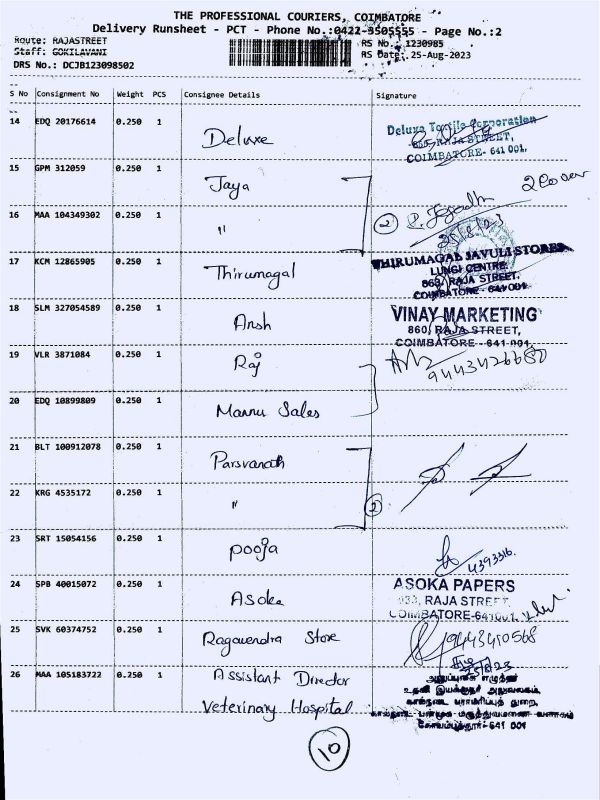 THE PROFESSIONAL COURIERS, COIMBATORE
Delivery Runsheet - PCT - Phone No.:0422-3505555 - Page No.:2
Route: RAJASTREET
RS No.: 1230985
Staff: GOKILAVANI
RS Date: 25-Aug-2023
DRS No.: DCJB123098502
S No Consignment No Weight PCS Consignee Details Signature
14 EDQ 20176614 0.250 1 Deluxe
Deluxe Textile Corporation
RAJA STREET,
COIMBATORE- 641 001.
15 GPM 312059 0.250 1 Jaya
16 MAA 104349302 0.250 1 "
2
25/8/23
17 KCM 12865905 0.250 1 Thirumagal
THIRUMAGAL JAVULI STORES
LUNGI CENTRE,
RAJA STREET,
COIMBATORE - 641 001
18 SLM 327054589 0.250 1 Ansh
VINAY MARKETING
860, RAJA STREET,
COIMBATORE - 641 001.
19 VLR 3871084 0.250 1 Raj
20 EDQ 10899809 0.250 1 Mannu Sales
21 BLT 100912078 0.250 1 Parsvanath
22 KRG 4535172 0.250 1 "
2
23 SRT 15054156 0.250 1 Pooja
4393316.
24 SPB 40015072 0.250 1 Asoka
ASOKA PAPERS
RAJA STREET,
COIMBATORE-641001.
25 SVK 60374752 0.250 1 Ragavendra Store
9443410568
26 MAA 105183722 0.250 1 Assistant Director
Veterinary Hospital
உதவி இயக்குநர் அலுவலகம்,
கால்நடை பராமரிப்புத் துறை,
கோயம்புத்தூர்-641 001
10